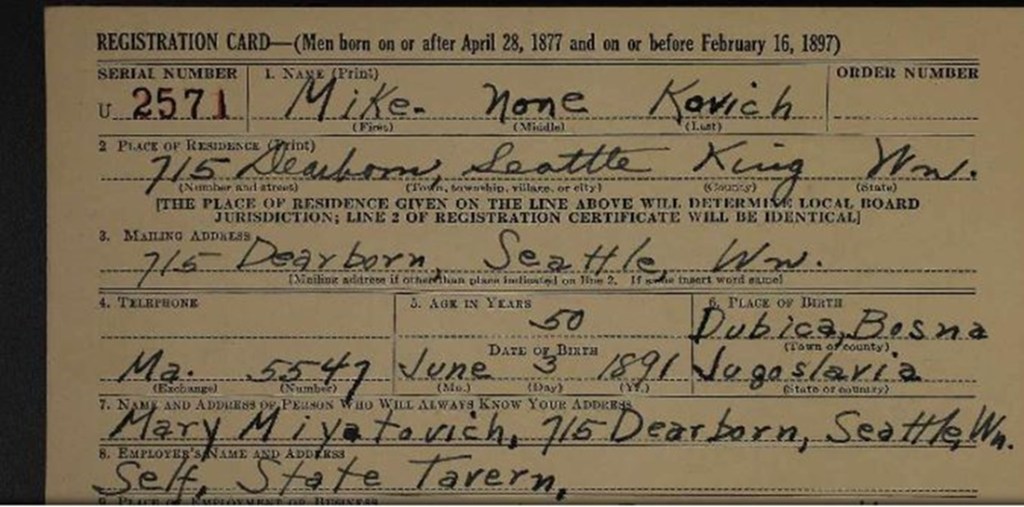 REGISTRATION CARD—(Men born on or after April 28, 1877 and on or before February 16, 1897)
SERIAL NUMBER 1. NAME (Print) ORDER NUMBER
U 2571 Mike- none Kovich
(First) (Middle) (Last)
2 PLACE OF RESIDENCE (Print)
715 Dearborn, Seattle King Wn.
(Number and street) (Town, township, village, or city) (County) (State)
[THE PLACE OF RESIDENCE GIVEN ON THE LINE ABOVE WILL DETERMINE LOCAL BOARD
JURISDICTION; LINE 2 OF REGISTRATION CERTIFICATE WILL BE IDENTICAL]
3. MAILING ADDRESS
715 Dearborn, Seattle, Wn.
[Mailing address if other than place indicated on line 2. If same insert word same]
4. TELEPHONE 5. AGE IN YEARS 6. PLACE OF BIRTH
50 Dubica, Bosna
DATE OF BIRTH (Town or county)
Ma. 5547 June 3 1891 Jugoslavia
(Exchange) (Number) (Mo.) (Day) (Yr.) (State or country)
7. NAME AND ADDRESS OF PERSON WHO WILL ALWAYS KNOW YOUR ADDRESS
Mary Miyatovich, 715 Dearborn, Seattle, Wn.
8. EMPLOYER'S NAME AND ADDRESS
Self, State Tavern,
9. PLACE OF EMPLOYMENT OR BUSINESS